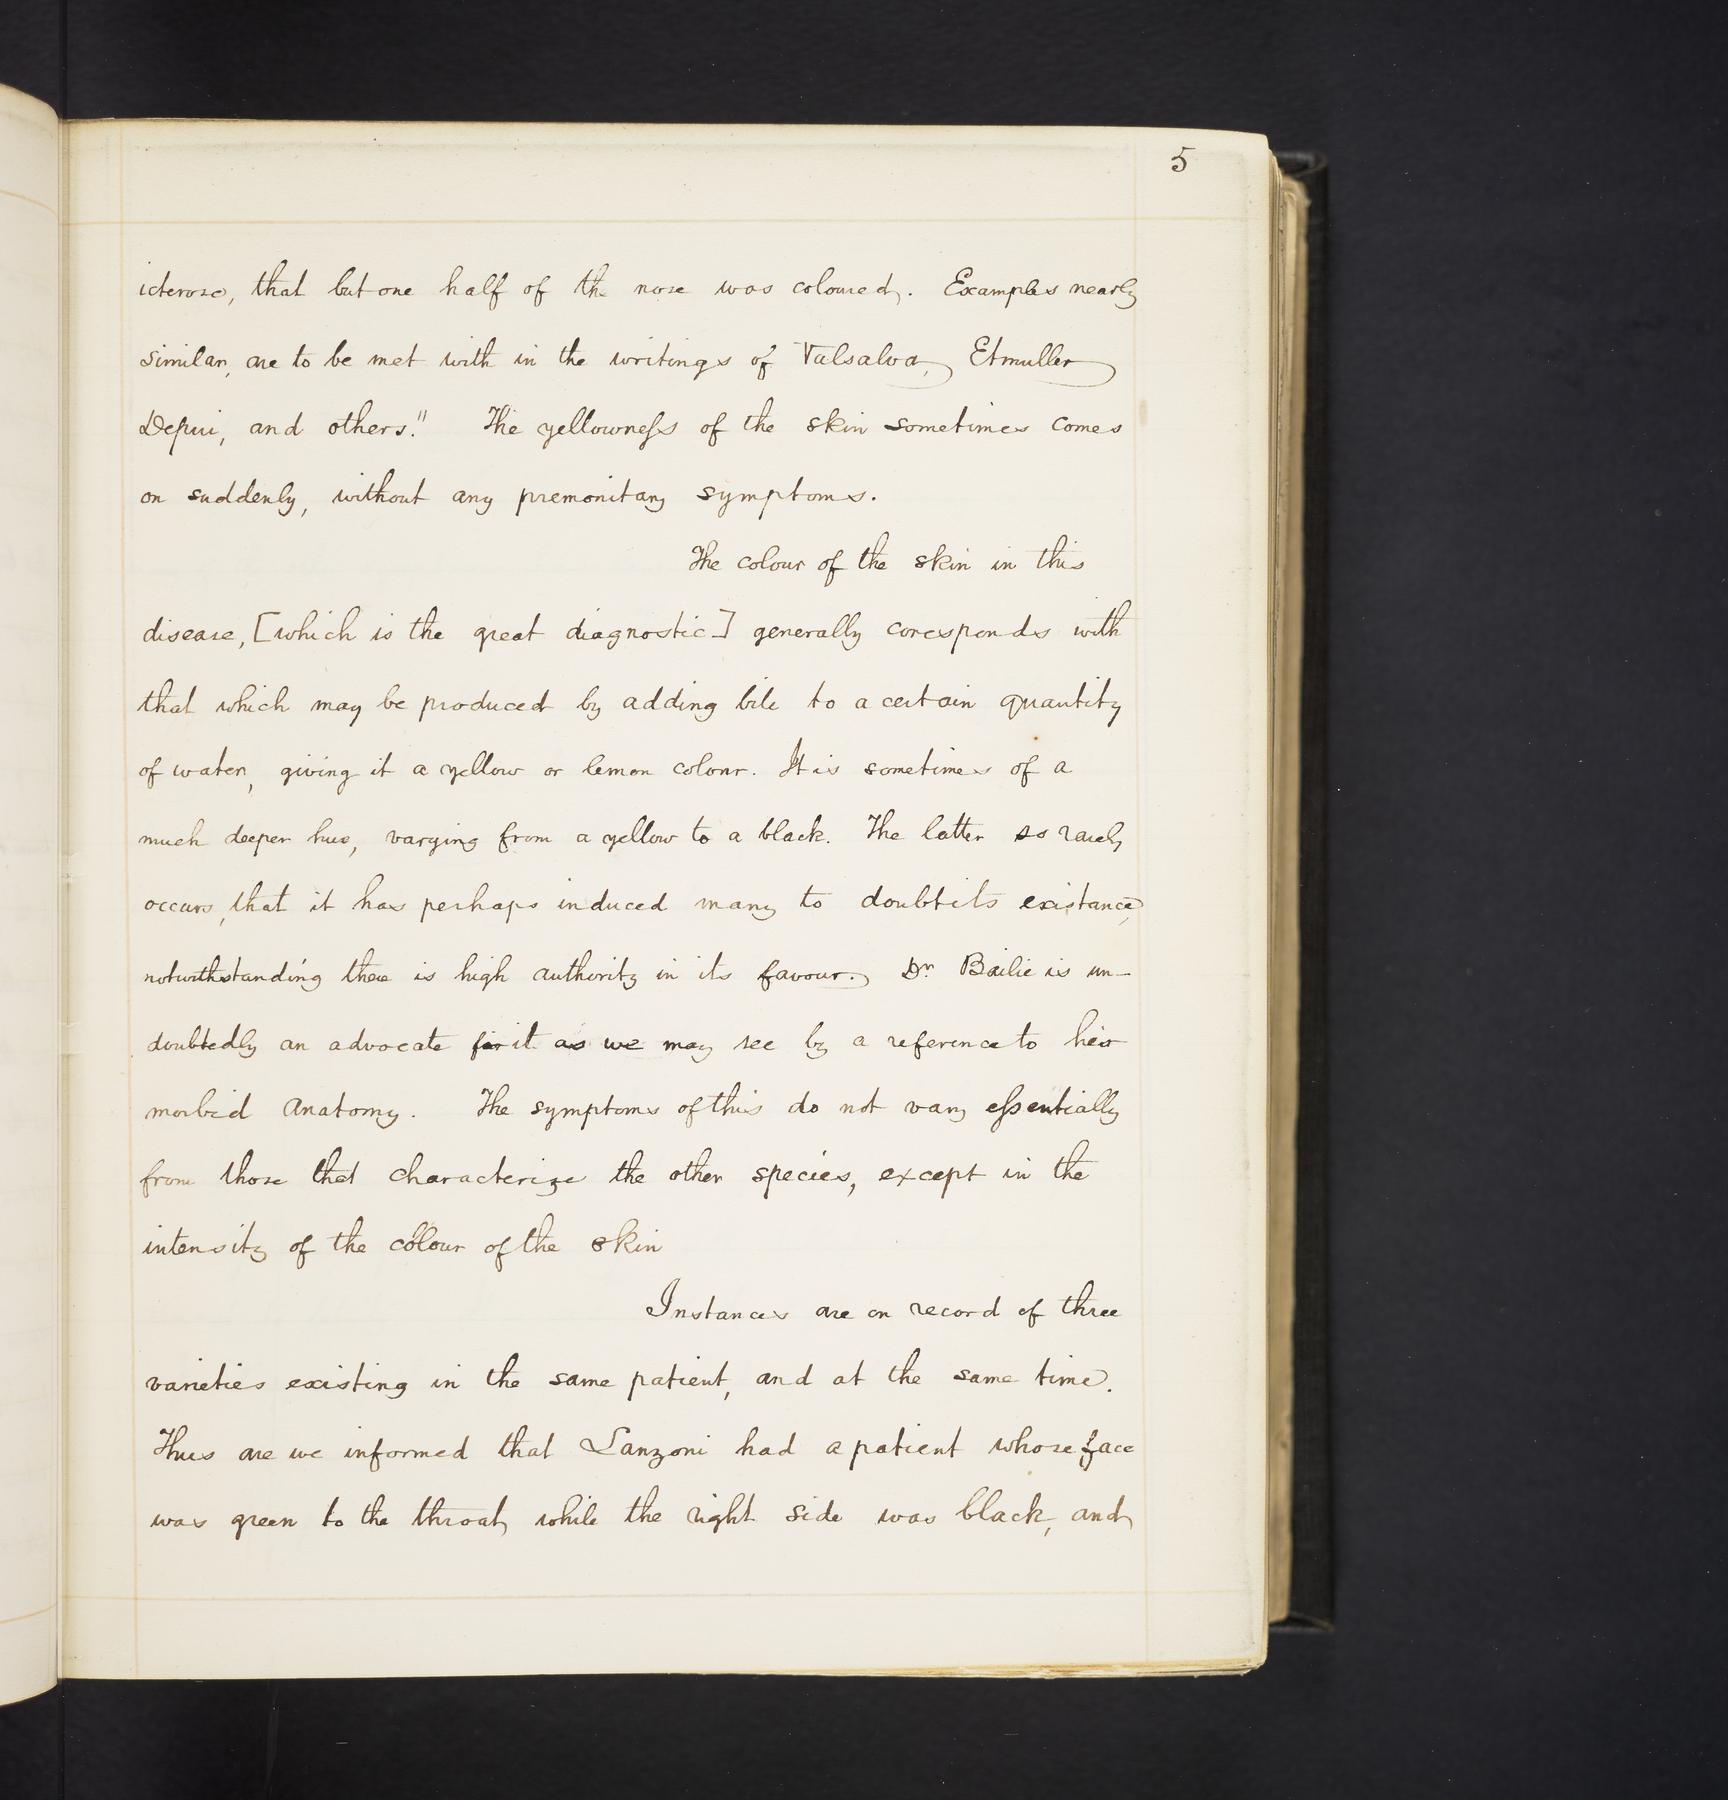 5
icterose, that but one half of the nose was coloured. Examples nearly
similar, are to be met with in the writings of Valsalva, Etmuller
Depui, and others." The yellowness of the skin sometimes comes
on suddenly, without any premonitary symptoms.
The colour of the skin in this
disease, [which is the great diagnostic] generally coresponds with
that which may be produced by adding bile to a certain quantity
of water, giving it a yellow or lemon colour. It is sometimes of a
much deeper hue, varying from a yellow to a black. The latter so rarely
occurs, that it has perhaps induced many to doubt its existance,
notwithstanding there is high authority in its favour. Dr Bailie is un-
doubtedly an advocate for it as we may see by a reference to his
morbid Anatomy. The symptoms of this do not vary essentially
from those that characterize the other species, except in the
intensity of the colour of the skin
Instances are on record of three
varieties existing in the same patient, and at the same time.
Thus are we informed that Lanzoni had a patient whose face
was green to the throat, while the right side was black, and